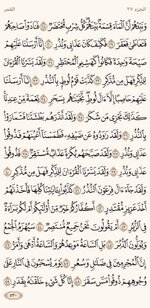 الجزء ٢٧ القمر
وَنَبِّئْهُمْ أَنَّ ٱلْمَآءَ قِسْمَةٌۢ بَيْنَهُمْ كُلُّ شِرْبٍ مُّحْتَضَرٌ ٢٨ فَنَادَوْا۟ صَاحِبَهُمْ
فَتَعَاطَىٰ فَعَقَرَ ٢٩ فَكَيْفَ كَانَ عَذَابِى وَنُذُرِ ٣٠ إِنَّآ أَرْسَلْنَا عَلَيْهِمْ
صَيْحَةً وَٰحِدَةً فَكَانُوا۟ كَهَشِيمِ ٱلْمُحْتَظِرِ ٣١ وَلَقَدْ يَسَّرْنَا ٱلْقُرْءَانَ
لِلذِّكْرِ فَهَلْ مِن مُّدَّكِرٍ ٣٢ كَذَّبَتْ قَوْمُ لُوطٍۭ بِٱلنُّذُرِ ٣٣ إِنَّآ أَرْسَلْنَا
عَلَيْهِمْ حَاصِبًا إِلَّآ ءَالَ لُوطٍ نَّجَّيْنَٰهُم بِسَحَرٍ ٣٤ نِّعْمَةً مِّنْ عِندِنَا
كَذَٰلِكَ نَجْزِى مَن شَكَرَ ٣٥ وَلَقَدْ أَنذَرَهُم بَطْشَتَنَا فَتَمَارَوْا۟
بِٱلنُّذُرِ ٣٦ وَلَقَدْ رَٰوَدُوهُ عَن ضَيْفِهِۦ فَطَمَسْنَآ أَعْيُنَهُمْ فَذُوقُوا۟
عَذَابِى وَنُذُرِ ٣٧ وَلَقَدْ صَبَّحَهُم بُكْرَةً عَذَابٌ مُّسْتَقِرٌّ ٣٨ فَذُوقُوا۟
عَذَابِى وَنُذُرِ ٣٩ وَلَقَدْ يَسَّرْنَا ٱلْقُرْءَانَ لِلذِّكْرِ فَهَلْ مِن مُّدَّكِرٍ ٤٠
وَلَقَدْ جَآءَ ءَالَ فِرْعَوْنَ ٱلنُّذُرُ ٤١ كَذَّبُوا۟ بِـَٔايَٰتِنَا كُلِّهَا فَأَخَذْنَٰهُمْ
أَخْذَ عَزِيزٍ مُّقْتَدِرٍ ٤٢ أَكُفَّارُكُمْ خَيْرٌ مِّنْ أُو۟لَٰٓئِكُمْ أَمْ لَكُم بَرَآءَةٌ
فِى ٱلزُّبُرِ ٤٣ أَمْ يَقُولُونَ نَحْنُ جَمِيعٌ مُّنتَصِرٌ ٤٤ سَيُهْزَمُ ٱلْجَمْعُ
وَيُوَلُّونَ ٱلدُّبُرَ ٤٥ بَلِ ٱلسَّاعَةُ مَوْعِدُهُمْ وَٱلسَّاعَةُ أَدْهَىٰ وَأَمَرُّ ٤٦
إِنَّ ٱلْمُجْرِمِينَ فِى ضَلَٰلٍ وَسُعُرٍ ٤٧ يَوْمَ يُسْحَبُونَ فِى ٱلنَّارِ عَلَىٰ
وُجُوهِهِمْ ذُوقُوا۟ مَسَّ سَقَرَ ٤٨ إِنَّا كُلَّ شَىْءٍ خَلَقْنَٰهُ بِقَدَرٍ ٤٩
٥٣٠